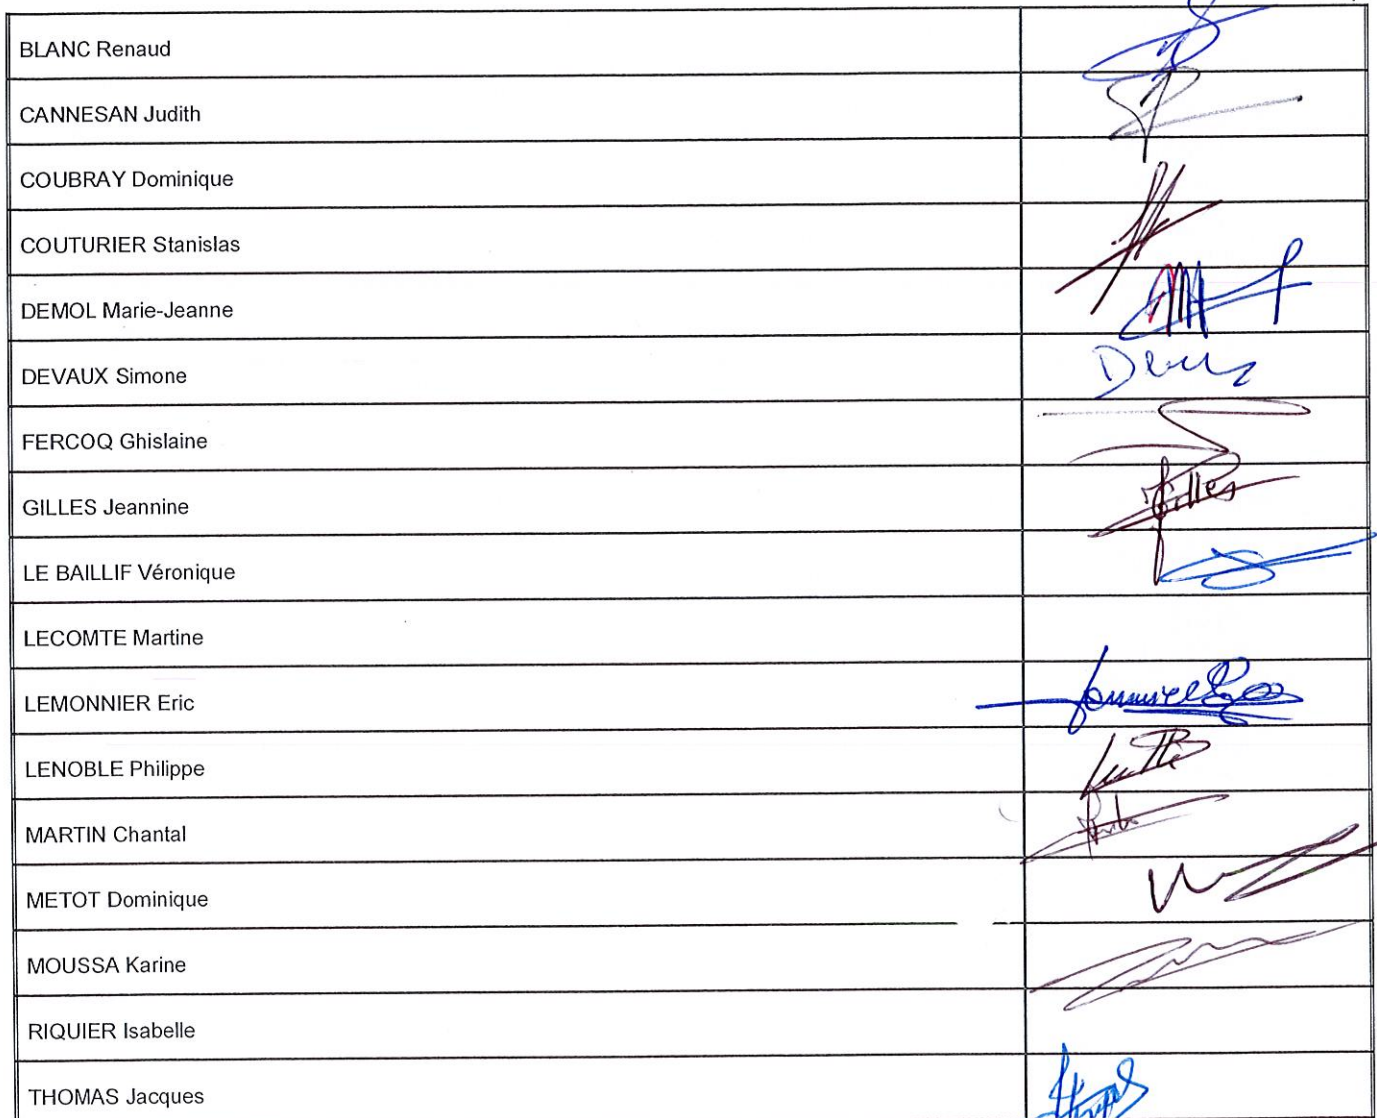 BLANC Renaud
CANNESAN Judith
COUBRAY Dominique
COUTURIER Stanislas
DEMOL Marie-Jeanne
DEVAUX Simone
FERCOQ Ghislaine
GILLES Jeannine
Gilles
LE BAILLIF Véronique
LECOMTE Martine
LEMONNIER Eric
LENOBLE Philippe
MARTIN Chantal
METOT Dominique
MOUSSA Karine
RIQUIER Isabelle
THOMAS Jacques